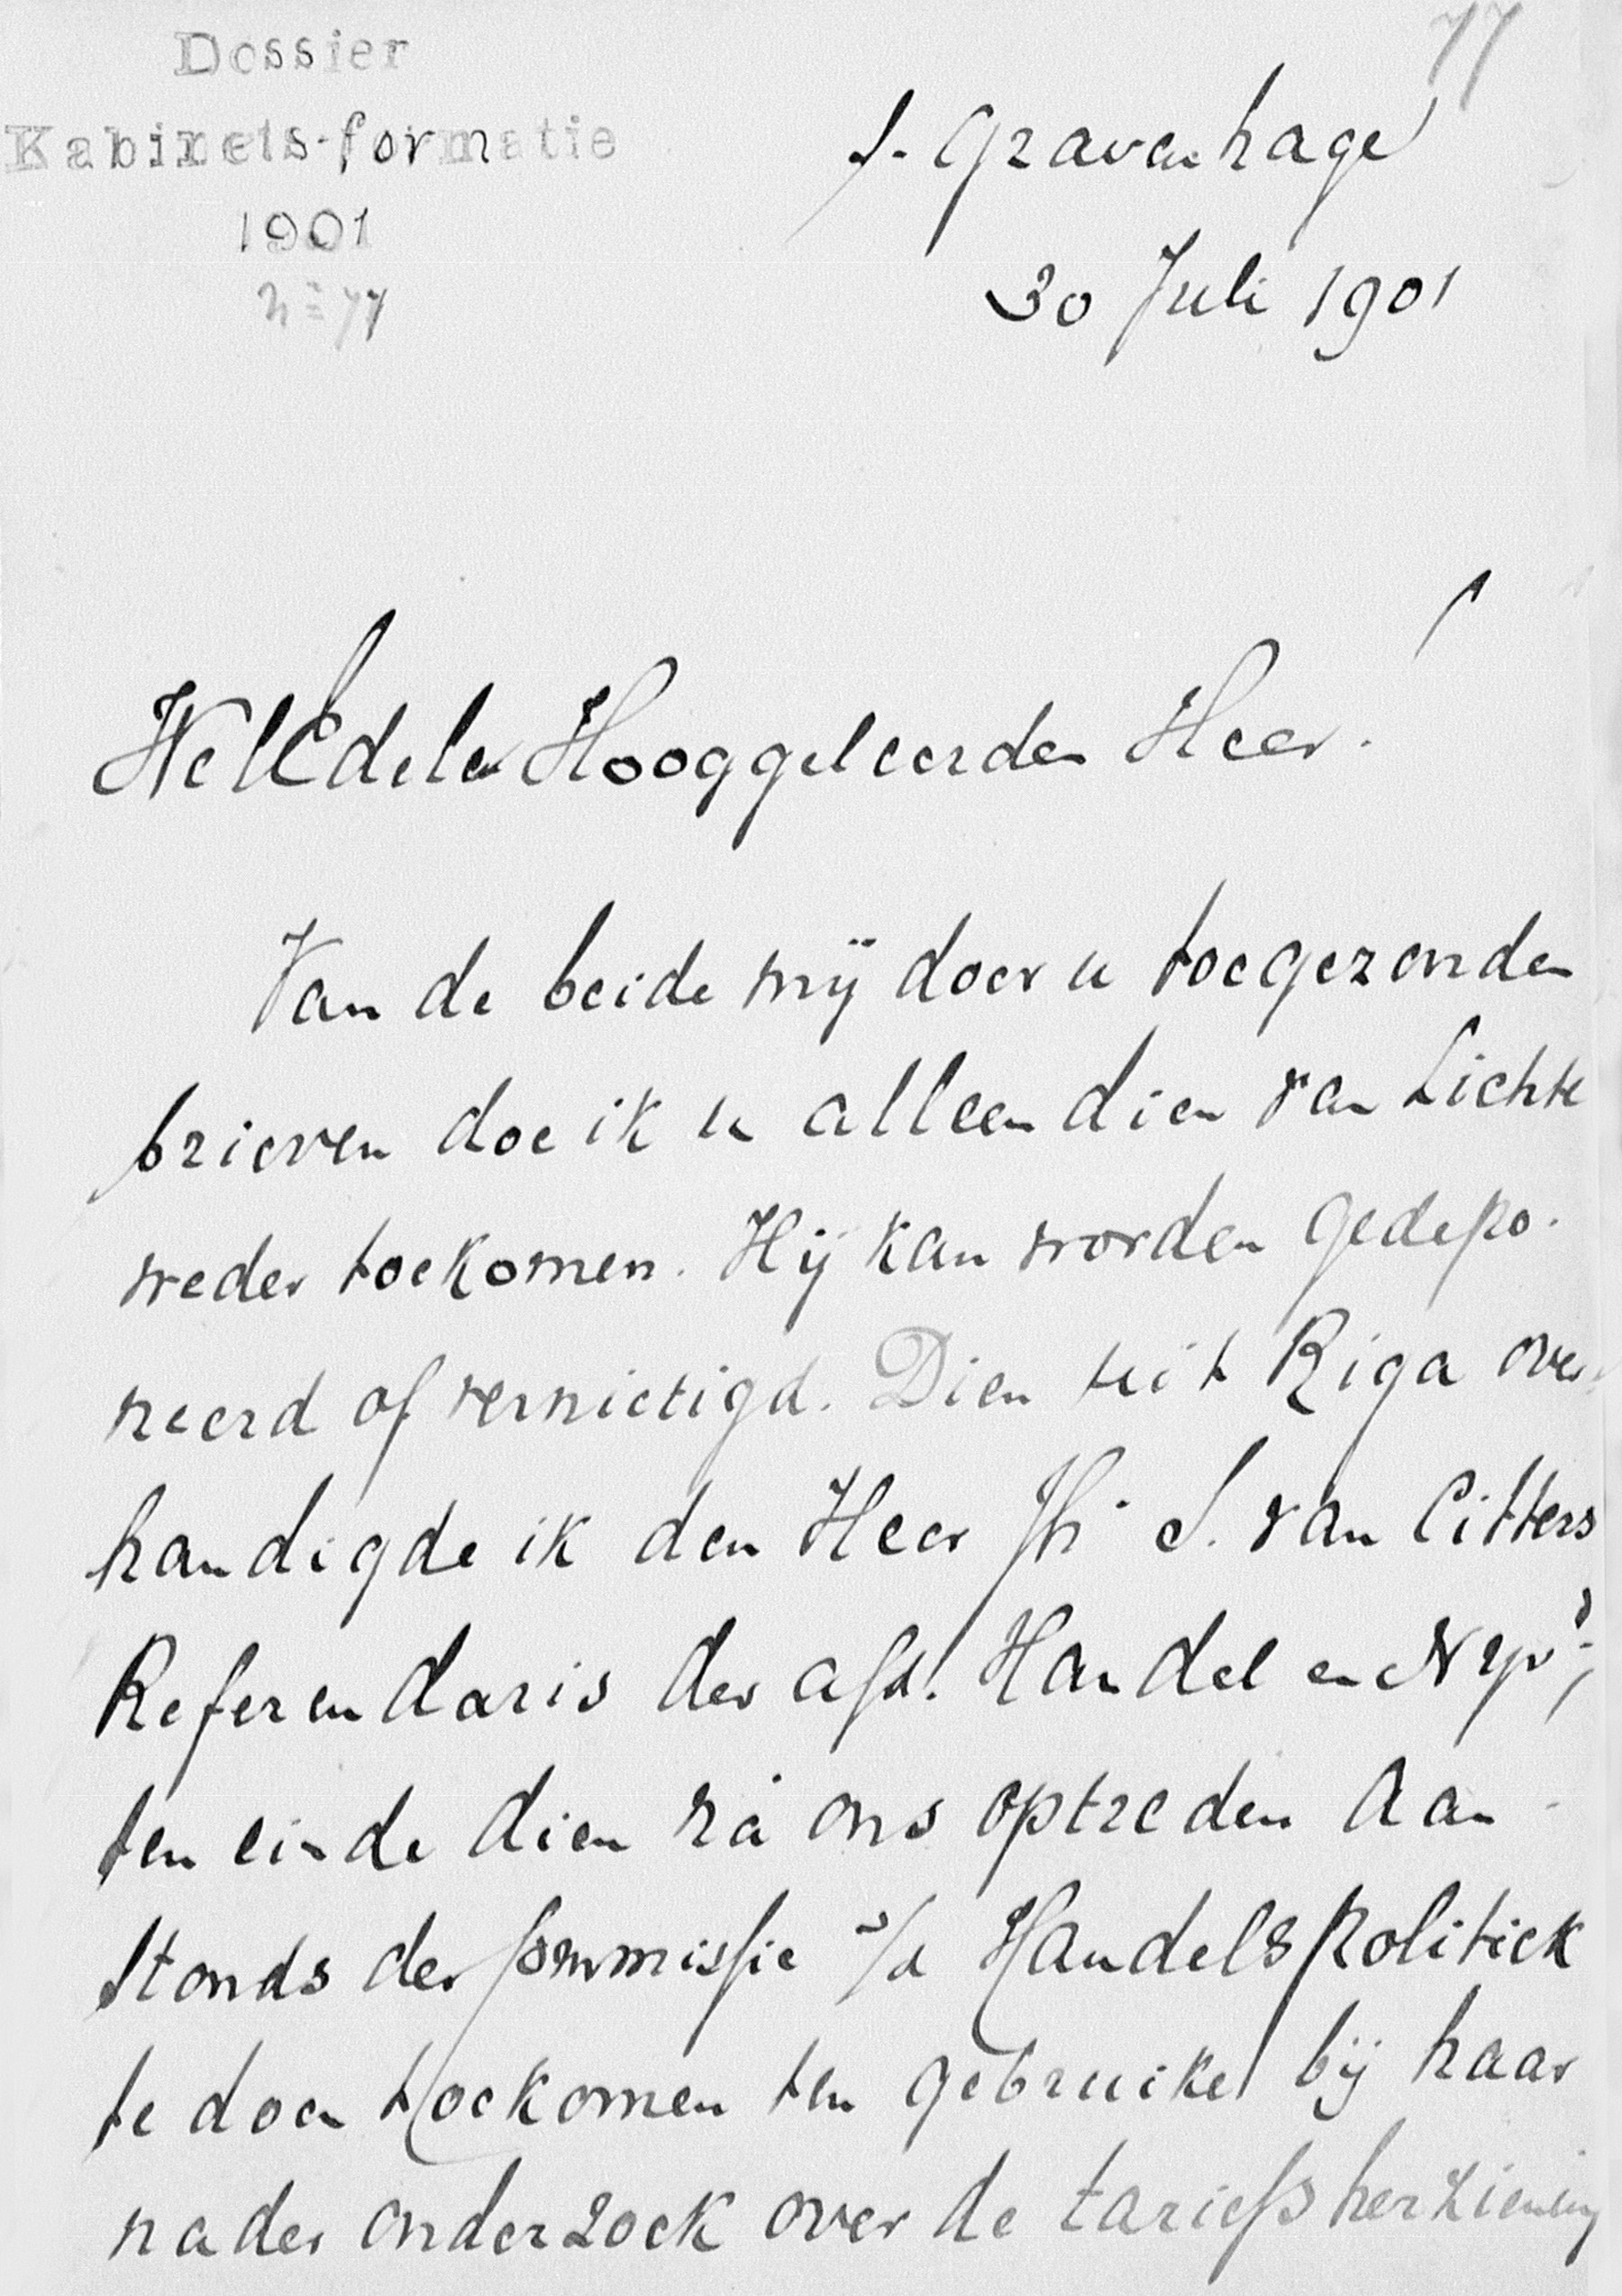 77
Dossier
Kabinets-formatie
1901
no 77
s-Gravenhage
30 Juli 1901
WelEdele Hooggeleerden Heer!
Van de beide mij door u toegezonden
brieven doe ik u alleen dien van Lichte
weder toekomen. Hij kan worden gedepo-
neerd of vernietigd. Dien uit Riga over-
handigde ik den Heer Jhr S. van Citters
Referendaris der afd. Handel en Nijvd,
ten einde dien nà ons optreden aan-
stonds der Commissie v/d Handelspolitiek
te doen toekomen ten gebruike bij haar
nader onderzoek over de tariefsherziening